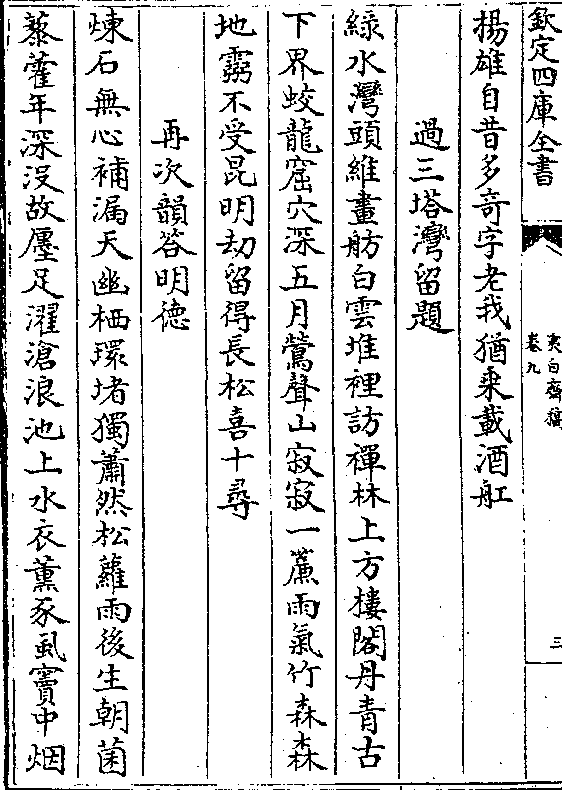 欽定四庫全書
夷白齋稿
卷九
三
揚雄自昔多奇字老我猶来載酒舡
過三塔灣留題
緑水灣頭維畫舫白雲堆裡訪禪林上方樓閣丹青古
下界蛟龍窟穴深五月鶯聲山寂寂一簾雨氣竹森森
地靈不受昆明劫留得長松喜十尋
再次韻答明德
煉石無心補漏天幽栖環堵獨蕭然松蘿雨後生朝菌
藜藿年深没故廛足濯滄浪池上水衣薫豕虱竇中烟